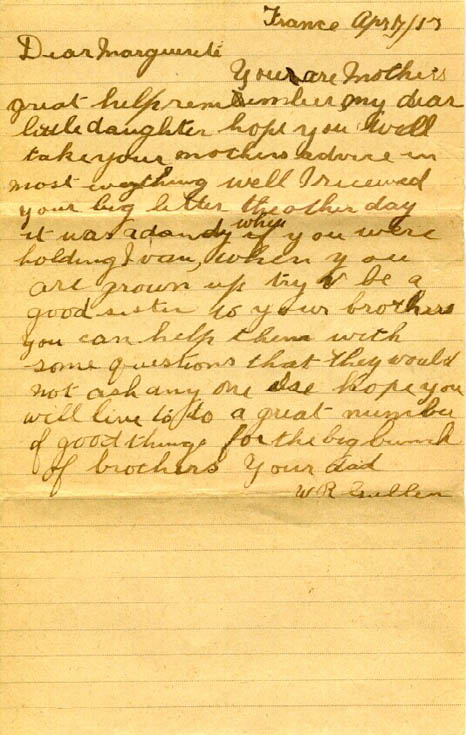 France Apr 7/17
Dear Marguerite
Your are Mothers
great help remember my dear
little daughter hope you will
take your mothers advice in
most everything well I received
your big letter the other day
it was a dandy why if you were
holding Ivan, when you
are grown up try & be a
good sister to your brothers
you can help them with
some questions that they would
not ask any one else hope you
will live to do a great number
of good things for the big bunch
of brothers Your dad
W R